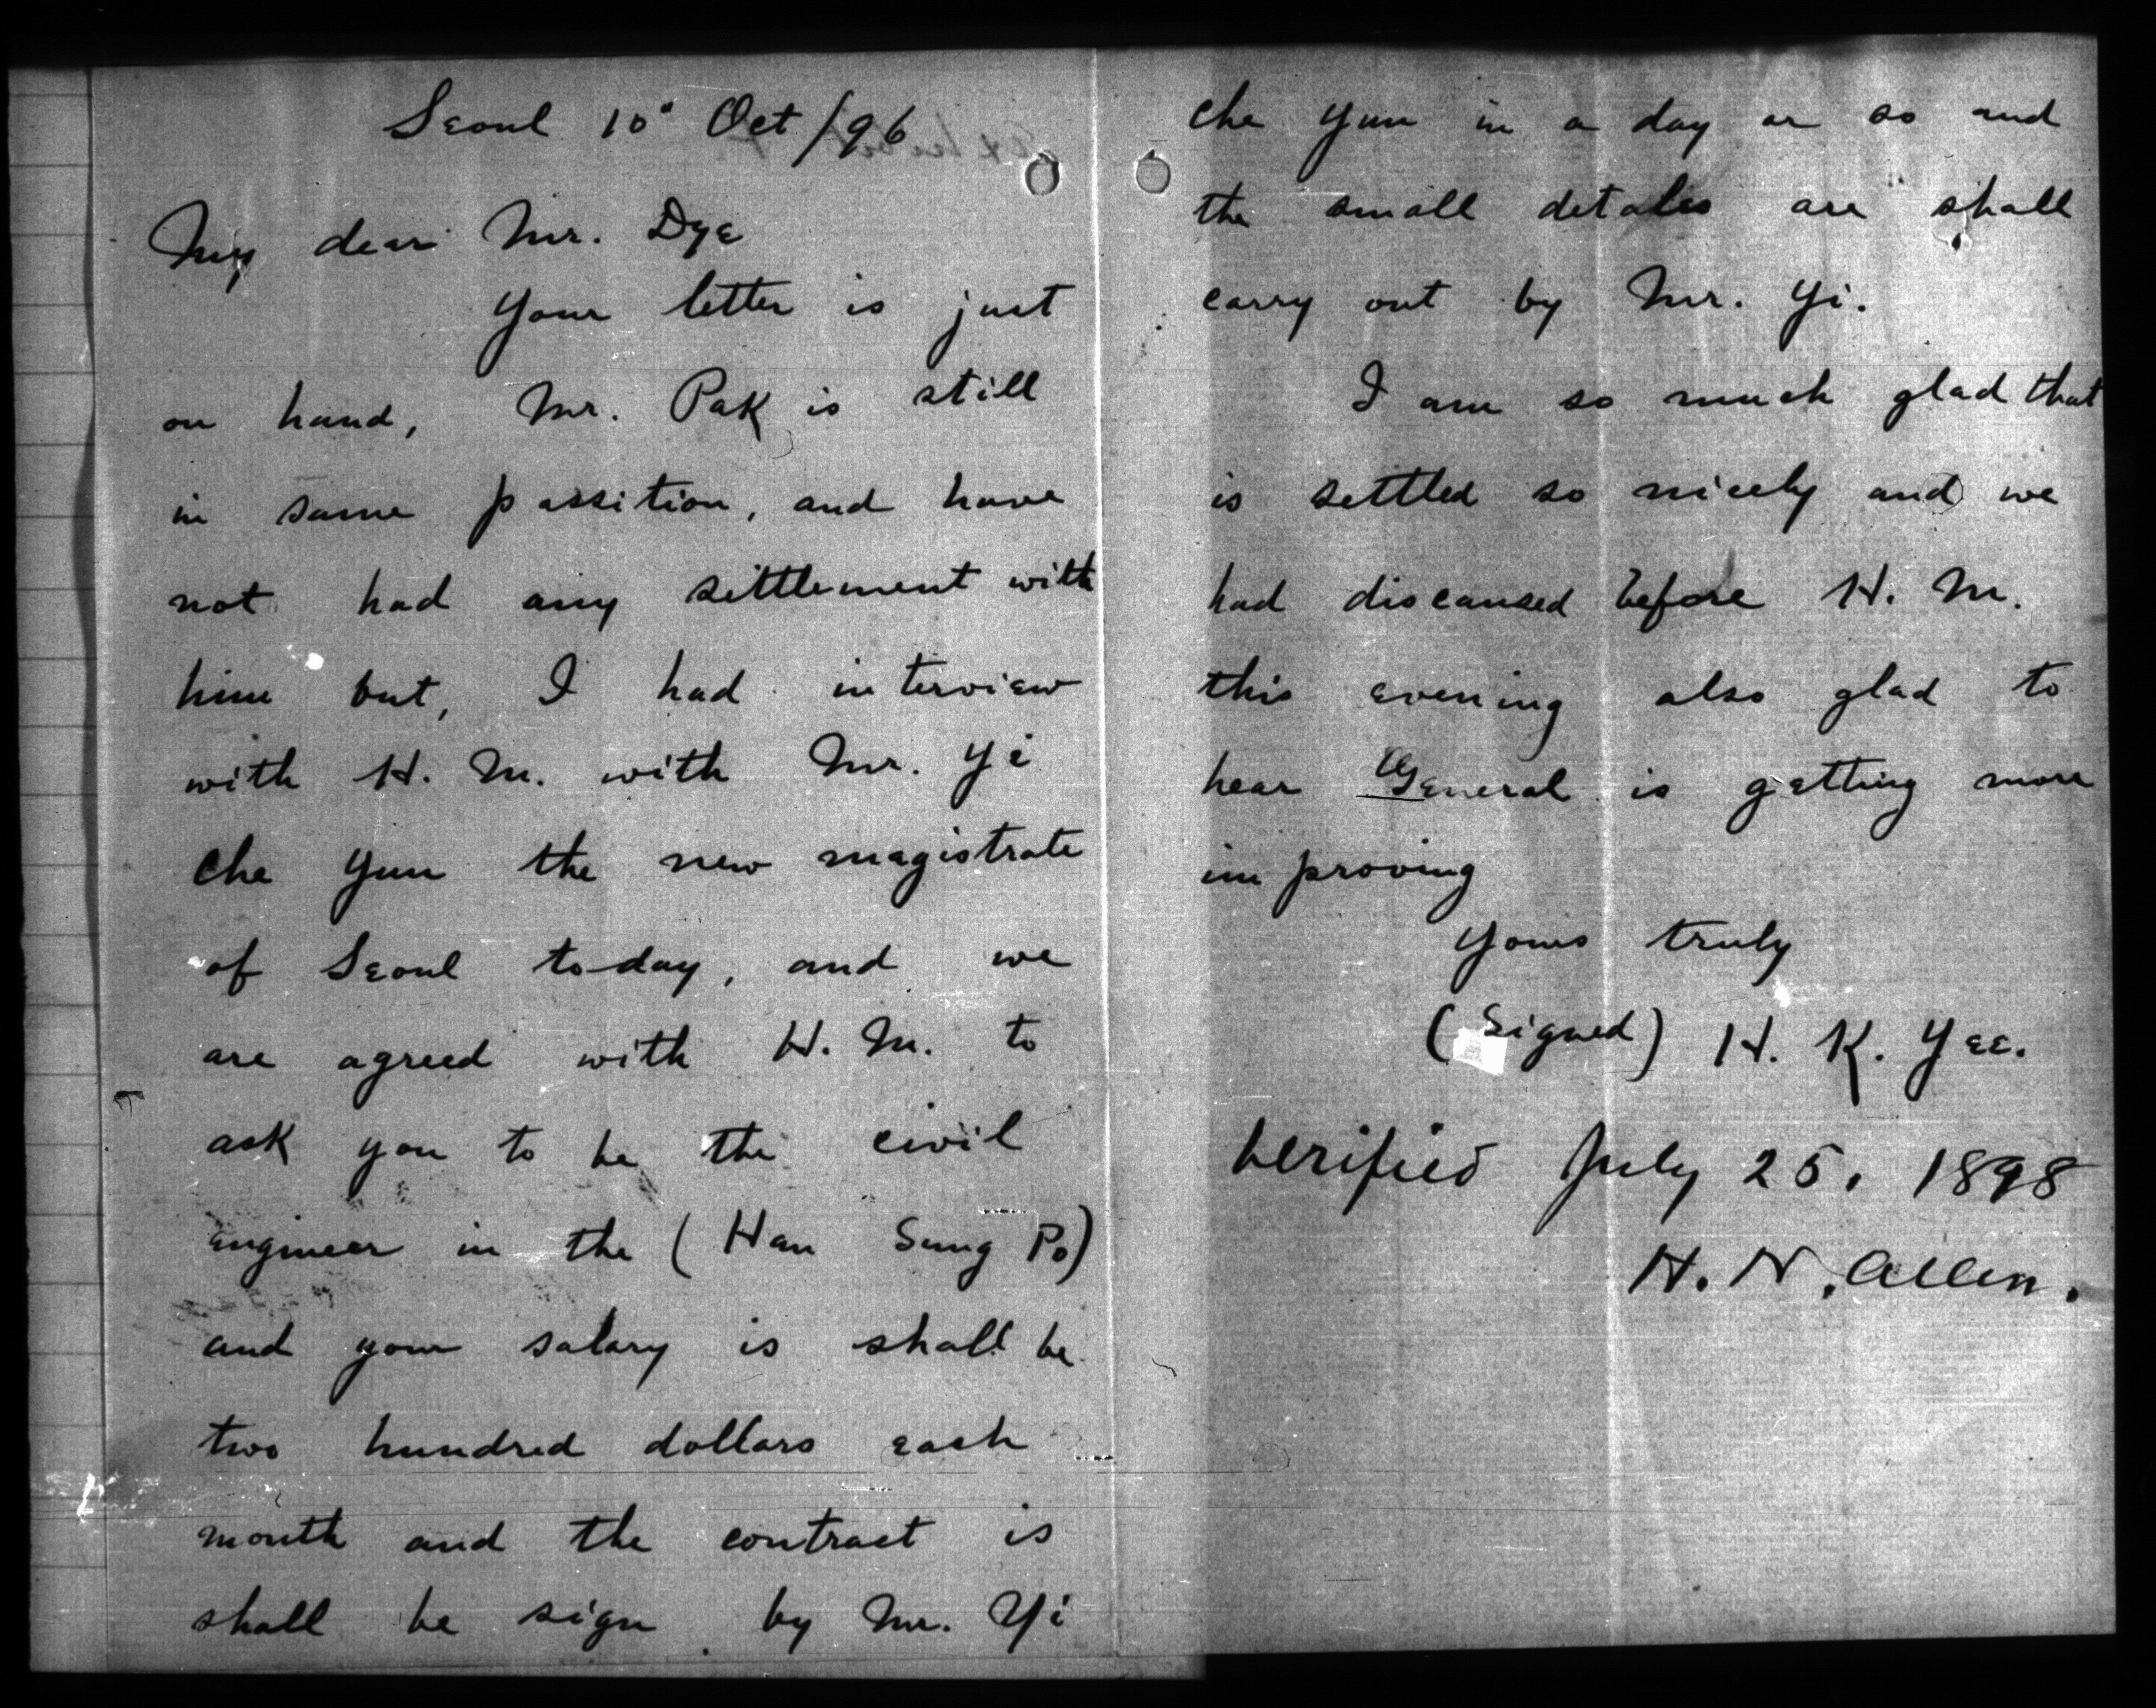 Seoul 10" Oct /96
My dear Mr. Dye
Your letter is just
on hand, Mr. Pak is still
in same passition, and have
not had any settlement with
him but, I had interview
with H. M. with Mr. Yi
Che Yun the new magistrate
of Seoul to-day, and we
are agreed with H. M. to
ask you to be the civil
engineer in the (Han Sung Po)
and your salary is shall be
two hundred dollars each
month and the contract is
shall be sign by Mr. Yi
Che Yun in a day or so and
the small detales are shall
carry out by Mr. Yi.
I am so much glad that
is settled so nicely and we
had discaused before H. M.
this evening also glad to
hear General is getting more
improving
Yours truly
(Signed) H. K. Yee.
Verified July 25, 1898
H. N. Allen.